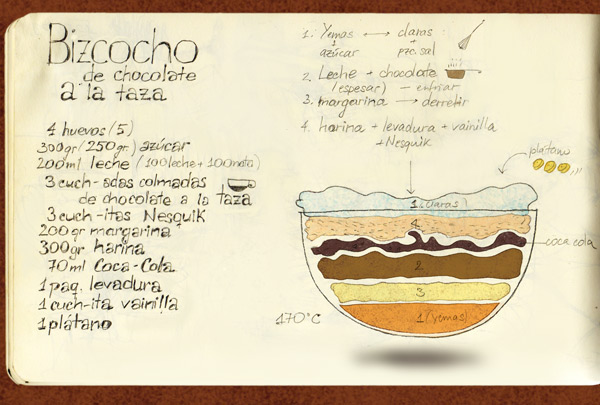 Bizcocho
de chocolate
a la taza
4 huevos (5)
300gr (250gr.) azúcar
200ml leche (100leche + 100nata)
3 cuch-adas colmadas
de chocolate a la taza
3 cuch-itas Nesquik
200gr margarina
300gr harina
70ml Coca-Cola
1 paq. levadura
1 cuch-ita vainilla
1 plátano
1. Yemas → claras
+ +
azúcar pzc. sal
2. Leche + chocolate
(espesar) – enfriar
3. margarina → derretir
4. harina + levadura + vainilla
+ Nesquik
plátano
1. (claras)
4.
coca cola
2
3
1 (Yemas)
170°C